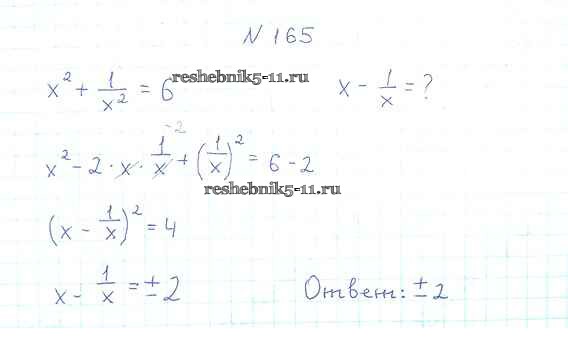 № 165
x² + 1/x² = 6 reshebnik5-11.ru x - 1/x = ?
-2
x² - 2 · x · 1/x + (1/x)² = 6 - 2
reshebnik5-11.ru
(x - 1/x)² = 4
x - 1/x = ±2 Ответ: ±2